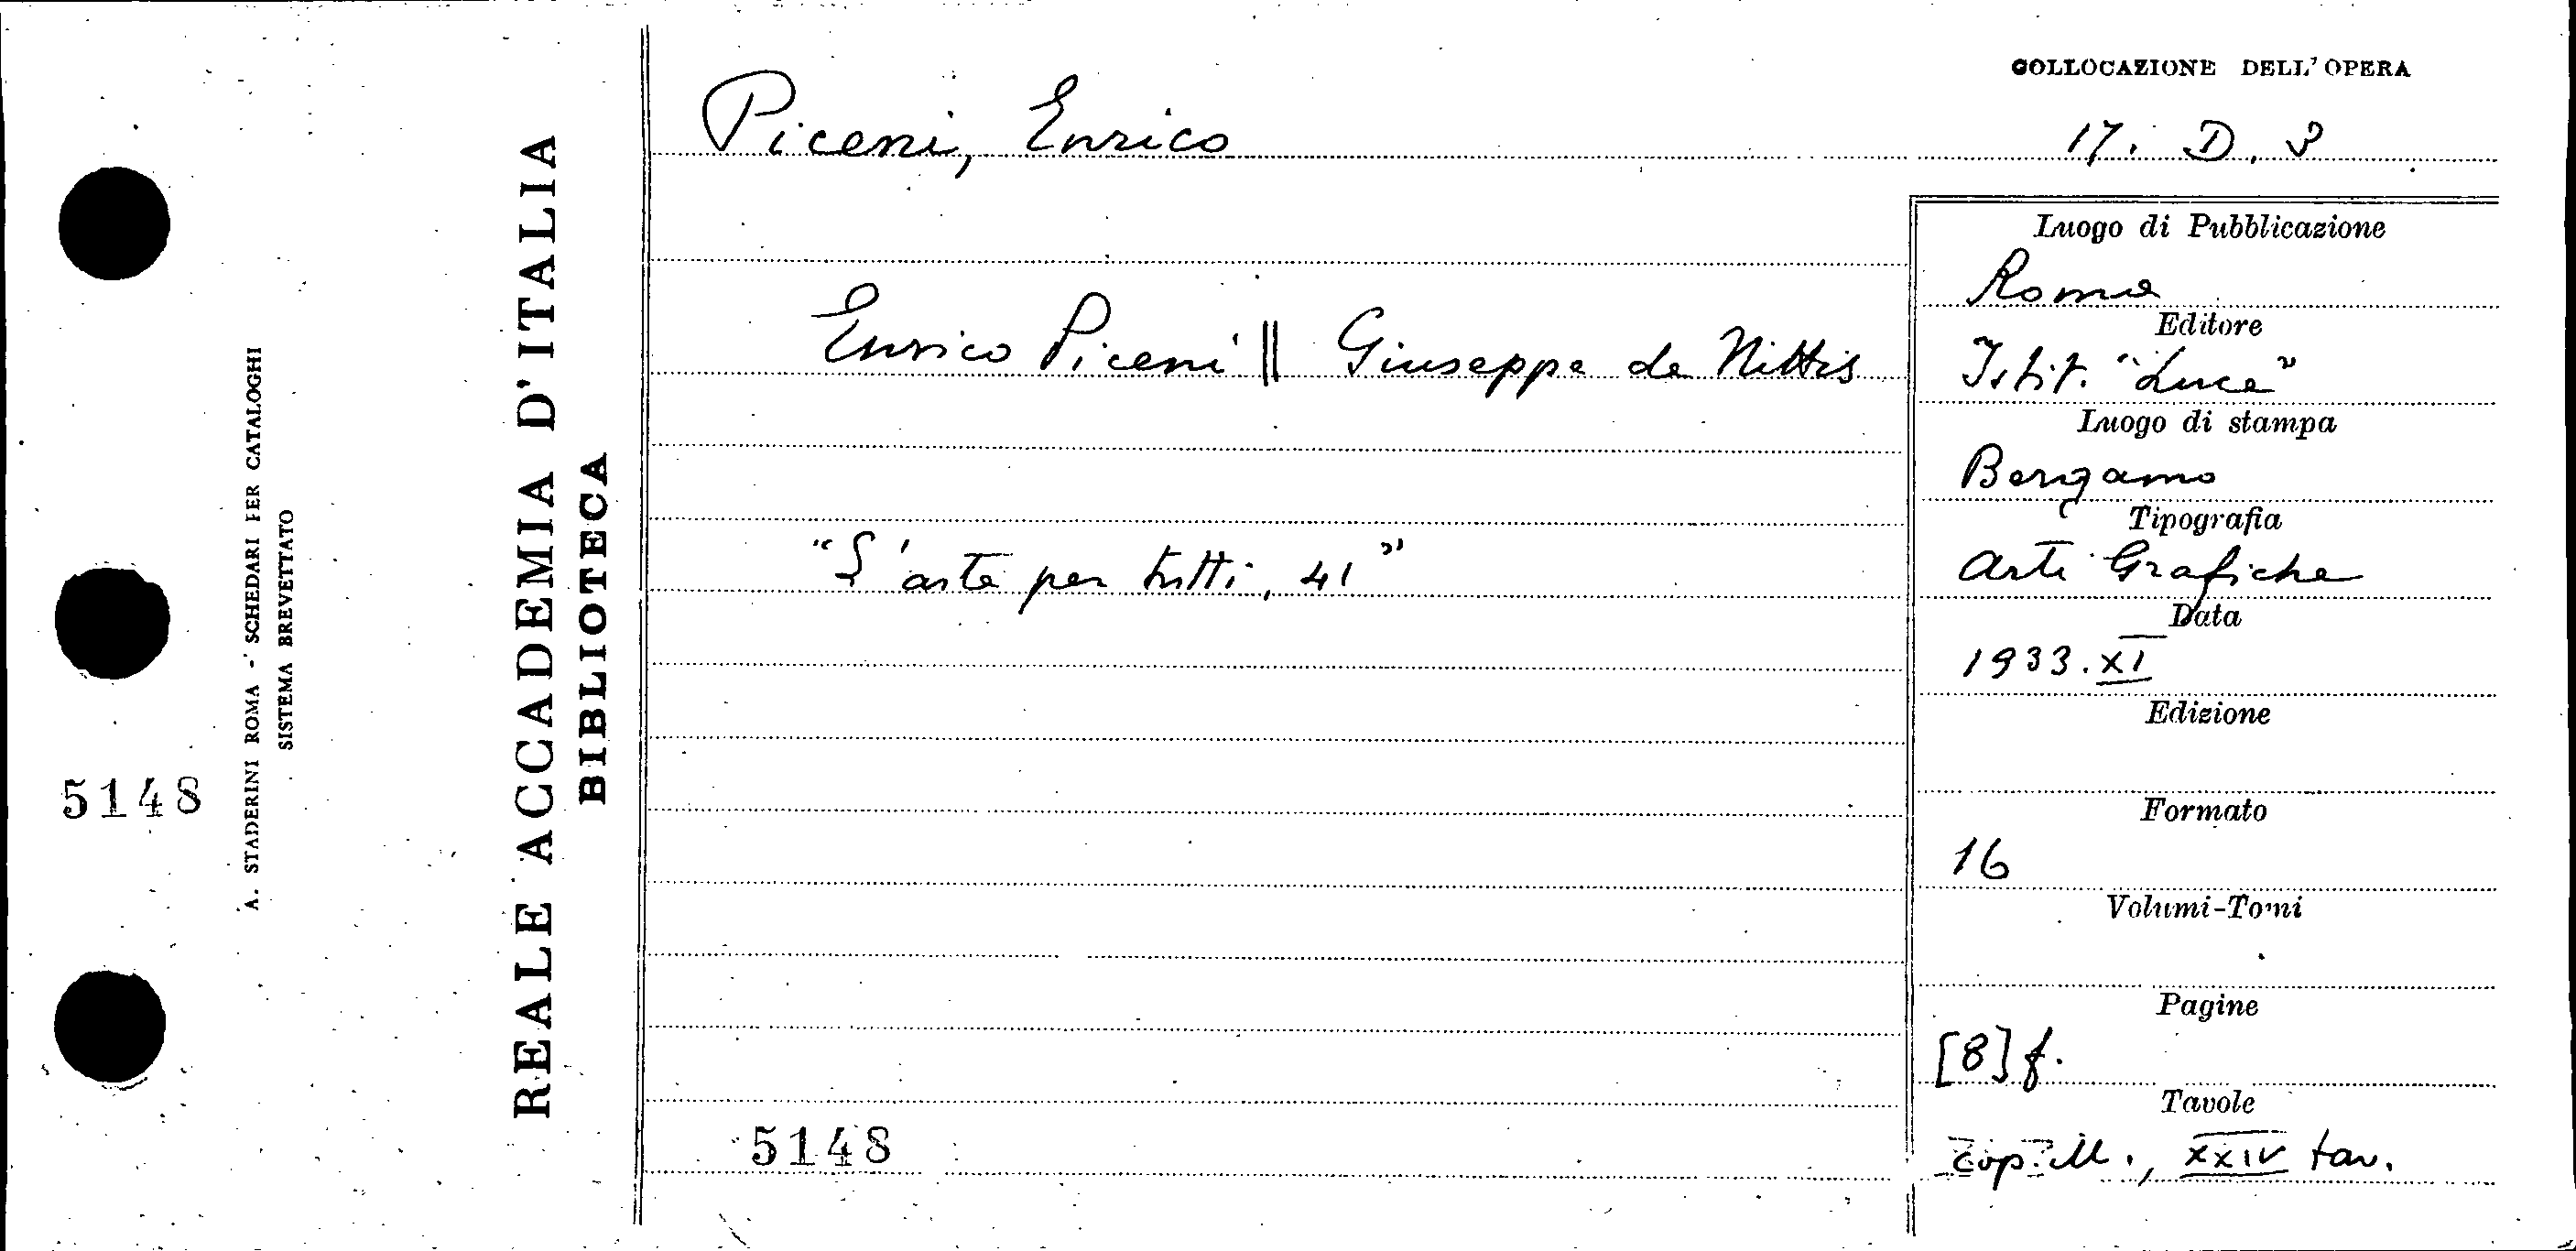 COLLOCAZIONE DELL'OPERA
Piceni, Enrico
17. D. 3
Enrico Piceni || Giuseppe de Nittis
"L'arte per tutti, 41"
5148
Luogo di Pubblicazione
Roma
Editore
Istit. "Luce"
Luogo di stampa
Bergamo
Tipografia
Arti Grafiche
Data
1933.XI
Edizione
Formato
16
Volumi-Tomi
Pagine
[8] f.
Tavole
cop. ill., XXIV tav.
REALE ACCADEMIA D'ITALIA
BIBLIOTECA
A. STADERINI ROMA - SCHEDARI PER CATALOGHI
SISTEMA BREVETTATO
5148